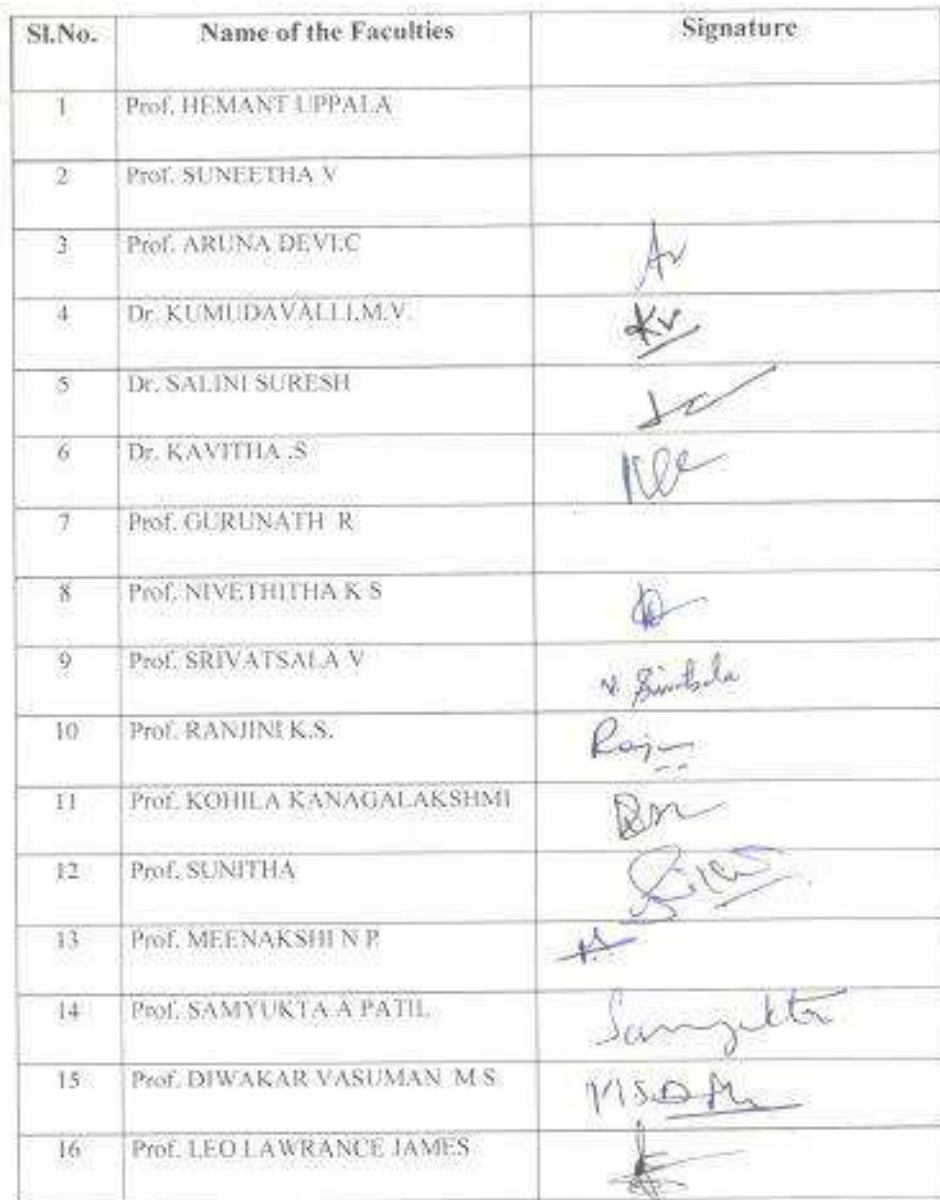 Sl.No. Name of the Faculties Signature
1 Prof. HEMANT UPPALA
2 Prof. SUNEETHA V
3 Prof. ARUNA DEVI.C
4 Dr. KUMUDAVALLI.M.V. Kv
5 Dr. SALINI SURESH
6 Dr. KAVITHA .S
7 Prof. GURUNATH R
8 Prof. NIVETHITHA K S
9 Prof. SRIVATSALA V
10 Prof. RANJINI K.S.
11 Prof. KOHILA KANAGALAKSHMI
12 Prof. SUNITHA
13 Prof. MEENAKSHI N P
14 Prof. SAMYUKTA A PATIL Samyukta
15 Prof. DIWAKAR VASUMAN M S
16 Prof. LEO LAWRANCE JAMES